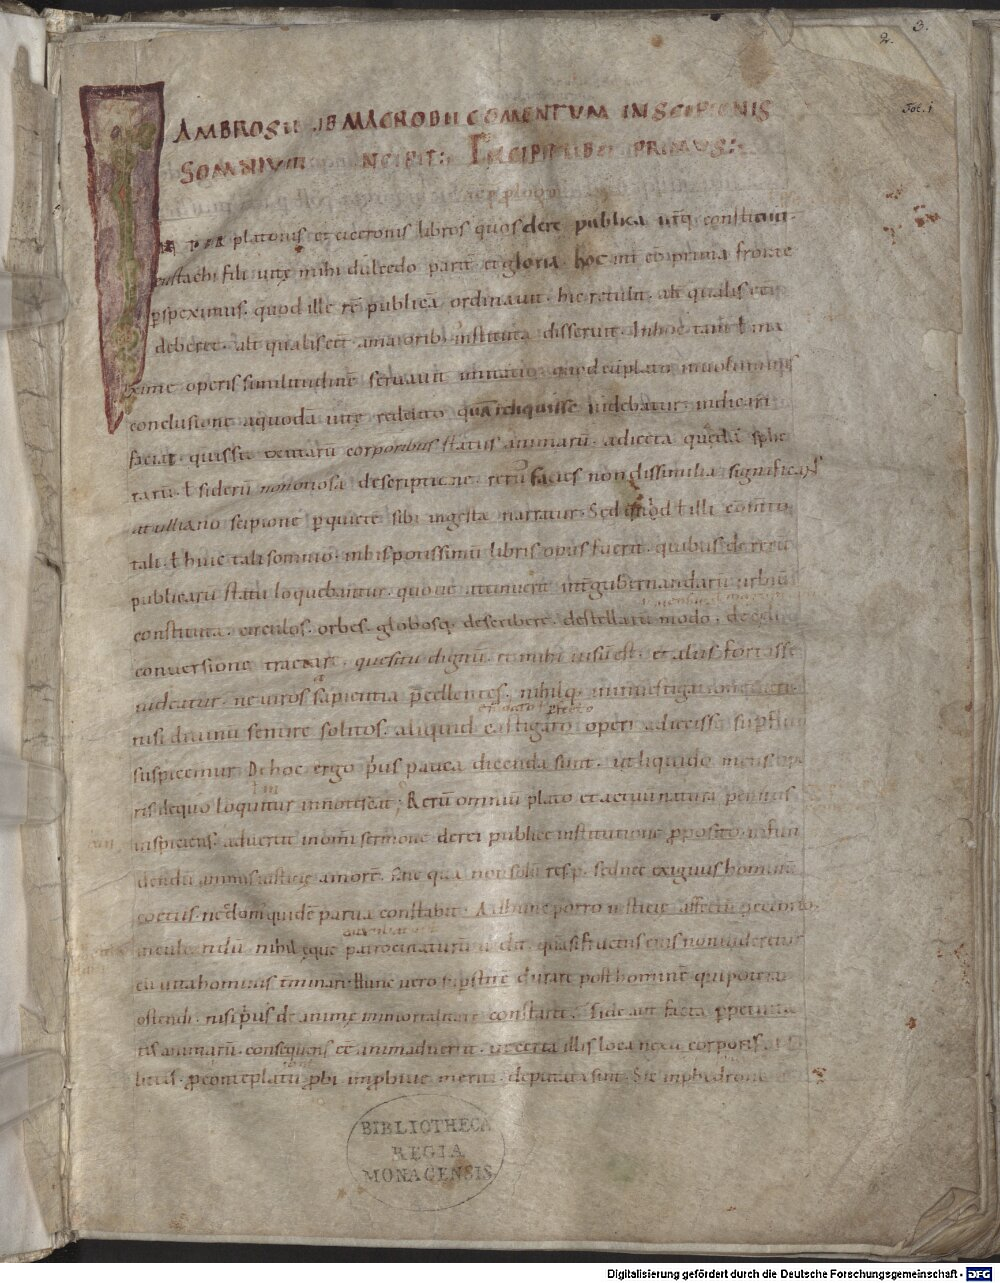 2. 3.
Fol. 1
AMBROSII MACROBII COMENTUM IN SCIPIONIS
SOMNIUM INCIPIT : INCIPIT LIBER PRIMUS :
platonis et ciceronis libros quos de re publica uterq; constituit.
eustachi fili uitę mihi dulcedo parit et gloria hoc int eos prima fronte
pspeximus. quod ille rē publicā ordinauit. hic retulit. alt qualis
deberet. alt qualis eēt a maiorib; instituta disseruit. In hoc tam ł ma
xime operis similitudinē seruauit imitatio. quod cū plato in uoluminis
conclusione a quodā uitę reddito quā reliquisse uidebatur. indicari
faciat. quis sit exutarū corporibus status animarū. adiecta quedā sphe
rarū. ł siderū non otiosa descriptione. rerū facies non dissimilia significans
a tulliano scipione p quietē sibi ingesta narratur. Sed quod ł illi cōmto
tali. ł huic tali somnio. in his potissimū libris opus fuerit. quibus de rerū
publicarū statu loquebantur. quoue attinuerit int gubernandarū urbiū
constituta. circulos. orbes. globosq; describere. de stellarū modo. de cęli
conuersione tractare. quesitu dignū. et mihi uisū est. et aliis fortasse
uideatur. ne uiros sapientia p̄cellentes. nihilq; in inuestigatione ueri.
nisi diuinū sentire solitos. aliquid castigato operi adiecisse supfluū
suspicemur. De hoc ergo p̄us pauca dicenda sunt. ut liquido mens ope
ris de quo loquimur innotescat; Rerū omniū plato et actuū natura penitus
inspiciens. aduertit in omī sermone de rei publice institutione pposito infun
dendū animis iusticię amorē. sine qua non solū res p. sed nec exiguus hominū
coetus. nec dom quidē parua constabit. Ad hunc porro iusticie affectū pectorib;
inculcandū nihil ęque patrocinaturū uidit. quasi fructus eius non uideretur
cū uita hominis t̄minari. Hunc uero supstitē durare post hominē qui poterat
ostendi. nisi p̄us de animę immortalitate constaret. Fide aut facta ppetuita
tis animarū. consequens eē animaduertit. ut certa illis loca nexu corporis
litis. p contēplatu pbi impbiue meriti deputata sint. Sic in phedrone
BIBLIOTHECA
REGIA
MONACENSIS
Digitalisierung gefördert durch die Deutsche Forschungsgemeinschaft - DFG